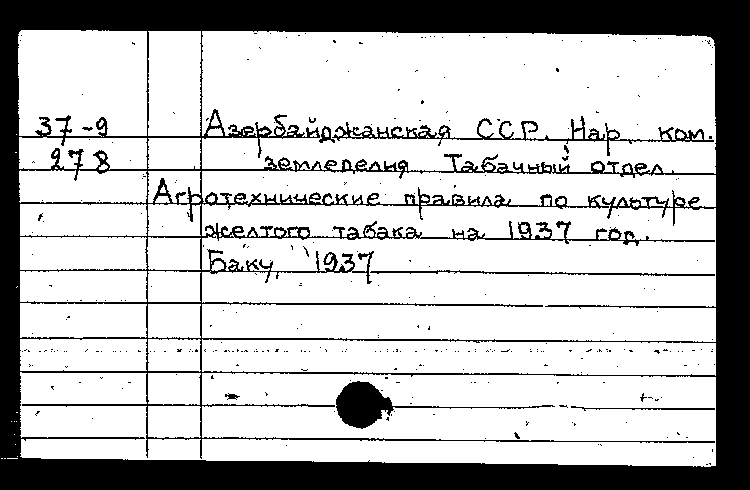 37-9 Азербайджанская ССР. Нар. ком.
278 земледелия. Табачный отдел.
Агротехнические правила по культуре
желтого табака на 1937 год.
Баку, 1937